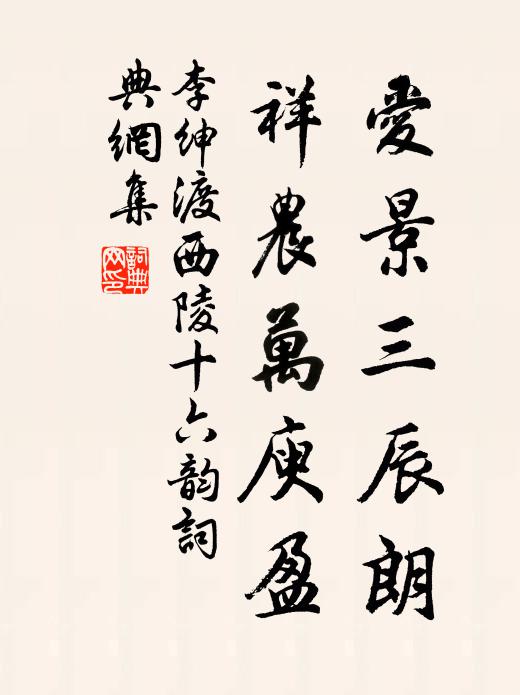 愛景三辰朗
祥農萬庾盈
李紳渡西陵十六韵詞
典網集
詞典网印